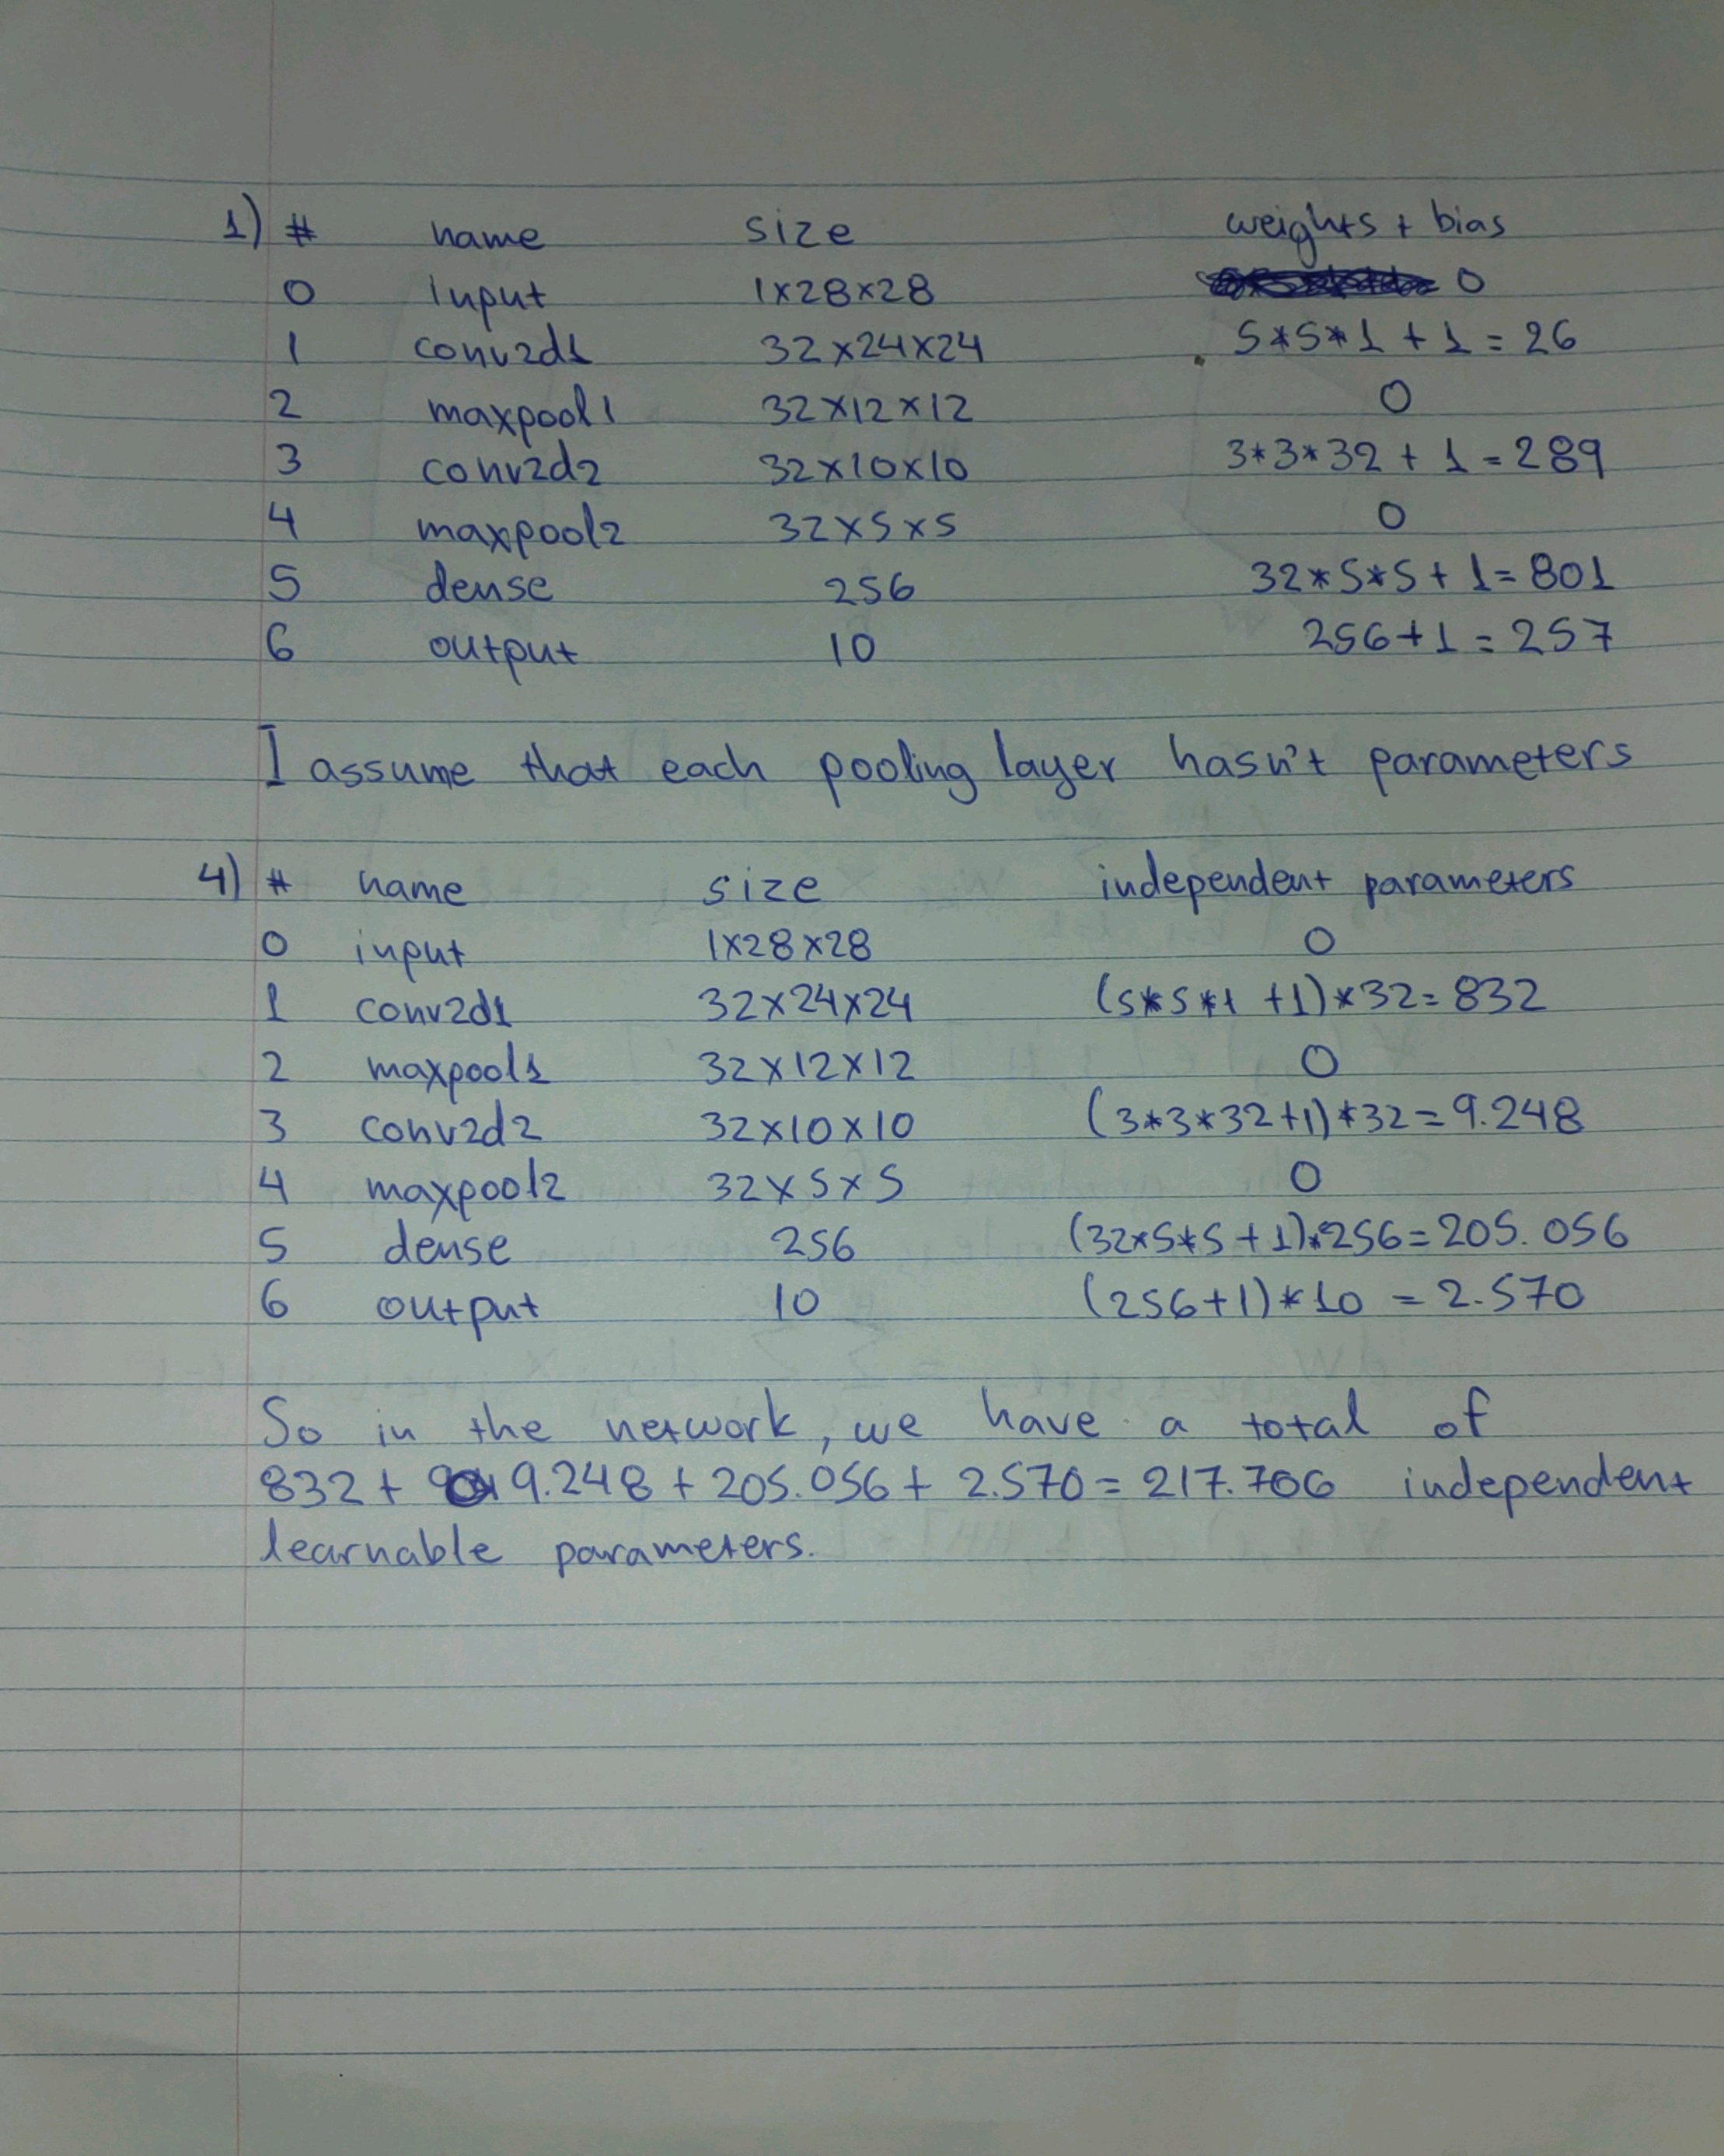 1) # name size weights + bias
0 input 1x28x28 0
1 conv2d1 32x24x24 5*5*1 + 1 = 26
2 maxpool1 32x12x12 0
3 conv2d2 32x10x10 3*3*32 + 1 = 289
4 maxpool2 32x5x5 0
5 dense 256 32*5*5 + 1 = 801
6 output 10 256+1 = 257
I assume that each pooling layer hasn't parameters
4) # name size independent parameters
0 input 1x28x28 0
1 conv2d1 32x24x24 (5*5*1 +1)*32 = 832
2 maxpool1 32x12x12 0
3 conv2d2 32x10x10 (3*3*32+1)*32 = 9.248
4 maxpool2 32x5x5 0
5 dense 256 (32*5*5 + 1)*256 = 205.056
6 output 10 (256+1)*10 = 2.570
So in the network, we have a total of
832 + 9.248 + 205.056 + 2.570 = 217.706 independent
learnable parameters.